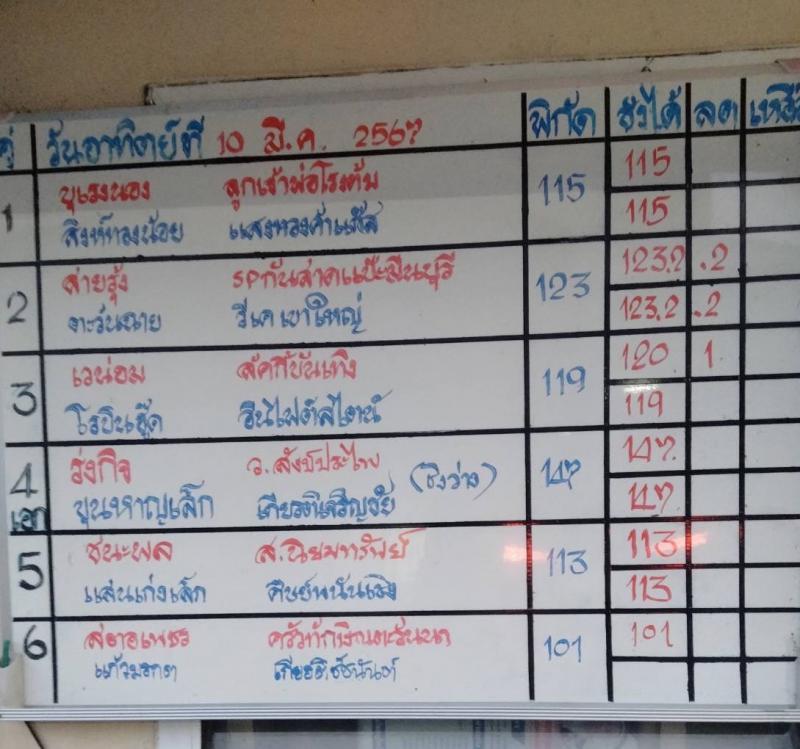 คู่ วันอาทิตย์ที่ 10 มี.ค. 2567 พิกัด ชั่งได้ ลด เหลือ
1 ขุแรงนอง ลูกเจ้าพ่อโรงต้ม 115 115
สิงห์ทองน้อย แสงทองคำแก๊ส 115
2 สายรุ้ง SPกันสาดแป๊ะมีนบุรี 123 123.2 .2
ตะวันฉาย วีเค เขาใหญ่ 123.2 .2
3 เวน่อม ศักดิ์บันเทิง 119 120 1
โรบินฮู๊ด 119
4 รุ่งกิจ ว.สังข์ประไพ 147 147
เอก ขุนหาญเล็ก เกียรติเจริญชัย (ชิงว่าง) 147
5 ชนะพล ส.นิยมทรัพย์ 113 113
แสนเก่งเล็ก ศิษย์พนันเชิง 113
6 101 101
แก้วมรกต เกียรติชัชนันท์